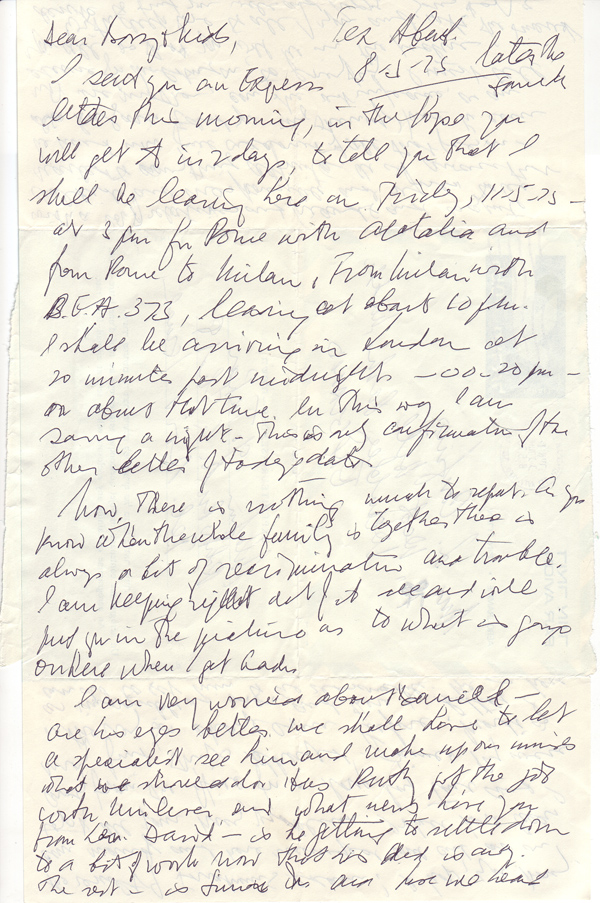 Dear & kids,
8-5-75
I send you an Express
letter this morning, in the hope you
will get it in 2 days, to tell you that I
shall be leaving here on Friday, 11-5-75 -
at 3 pm for Rome with Alitalia and
from Rome to Milan, From Milan with
B.E.A. 373, leaving at about 10 pm.
I shall be arriving in London at
20 minutes past midnight - 00-20 pm -
or about that time. In this way I am
saving a night - This is only confirmation of the
other letter of today's date
Now, There is nothing much to report. As you
know when the whole family is together there is
always a bit of recrimination and trouble.
I am keeping right out of it all and will
put you in the picture as to what is going
on here when I get back.
I am very worried about -
are his eyes better. We shall have to let
a specialist see him and make up our minds
what we should do. Has got the job
with Unilever, and what news have you
from him. David - is he getting to settle down
to a bit of work now that his Dad is away.
The rest - is and have we heard